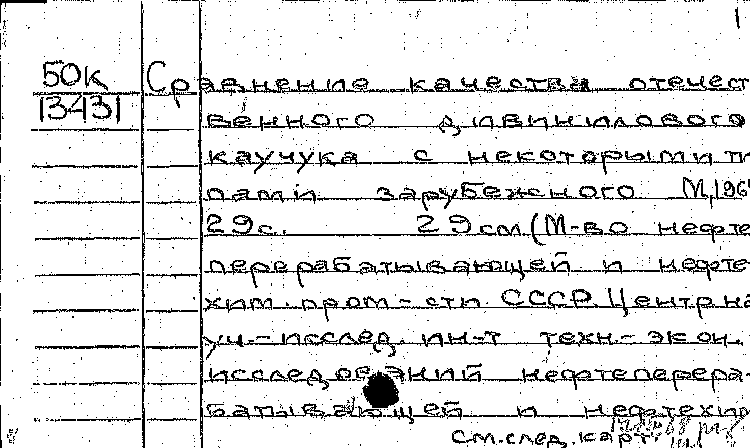 1
50к
13431
Сравнение качества отечест
венного дивинилового
каучука с некоторыми ти
пами зарубежного М,196
29с. 29см (М-во нефте
перерабатывающей и нефте
хим. пром-сти СССР. Центр на
уч.-исслед. ин-т техн.-экон.
исследований нефтеперера-
батывающей и нефтехим
см.след.карт